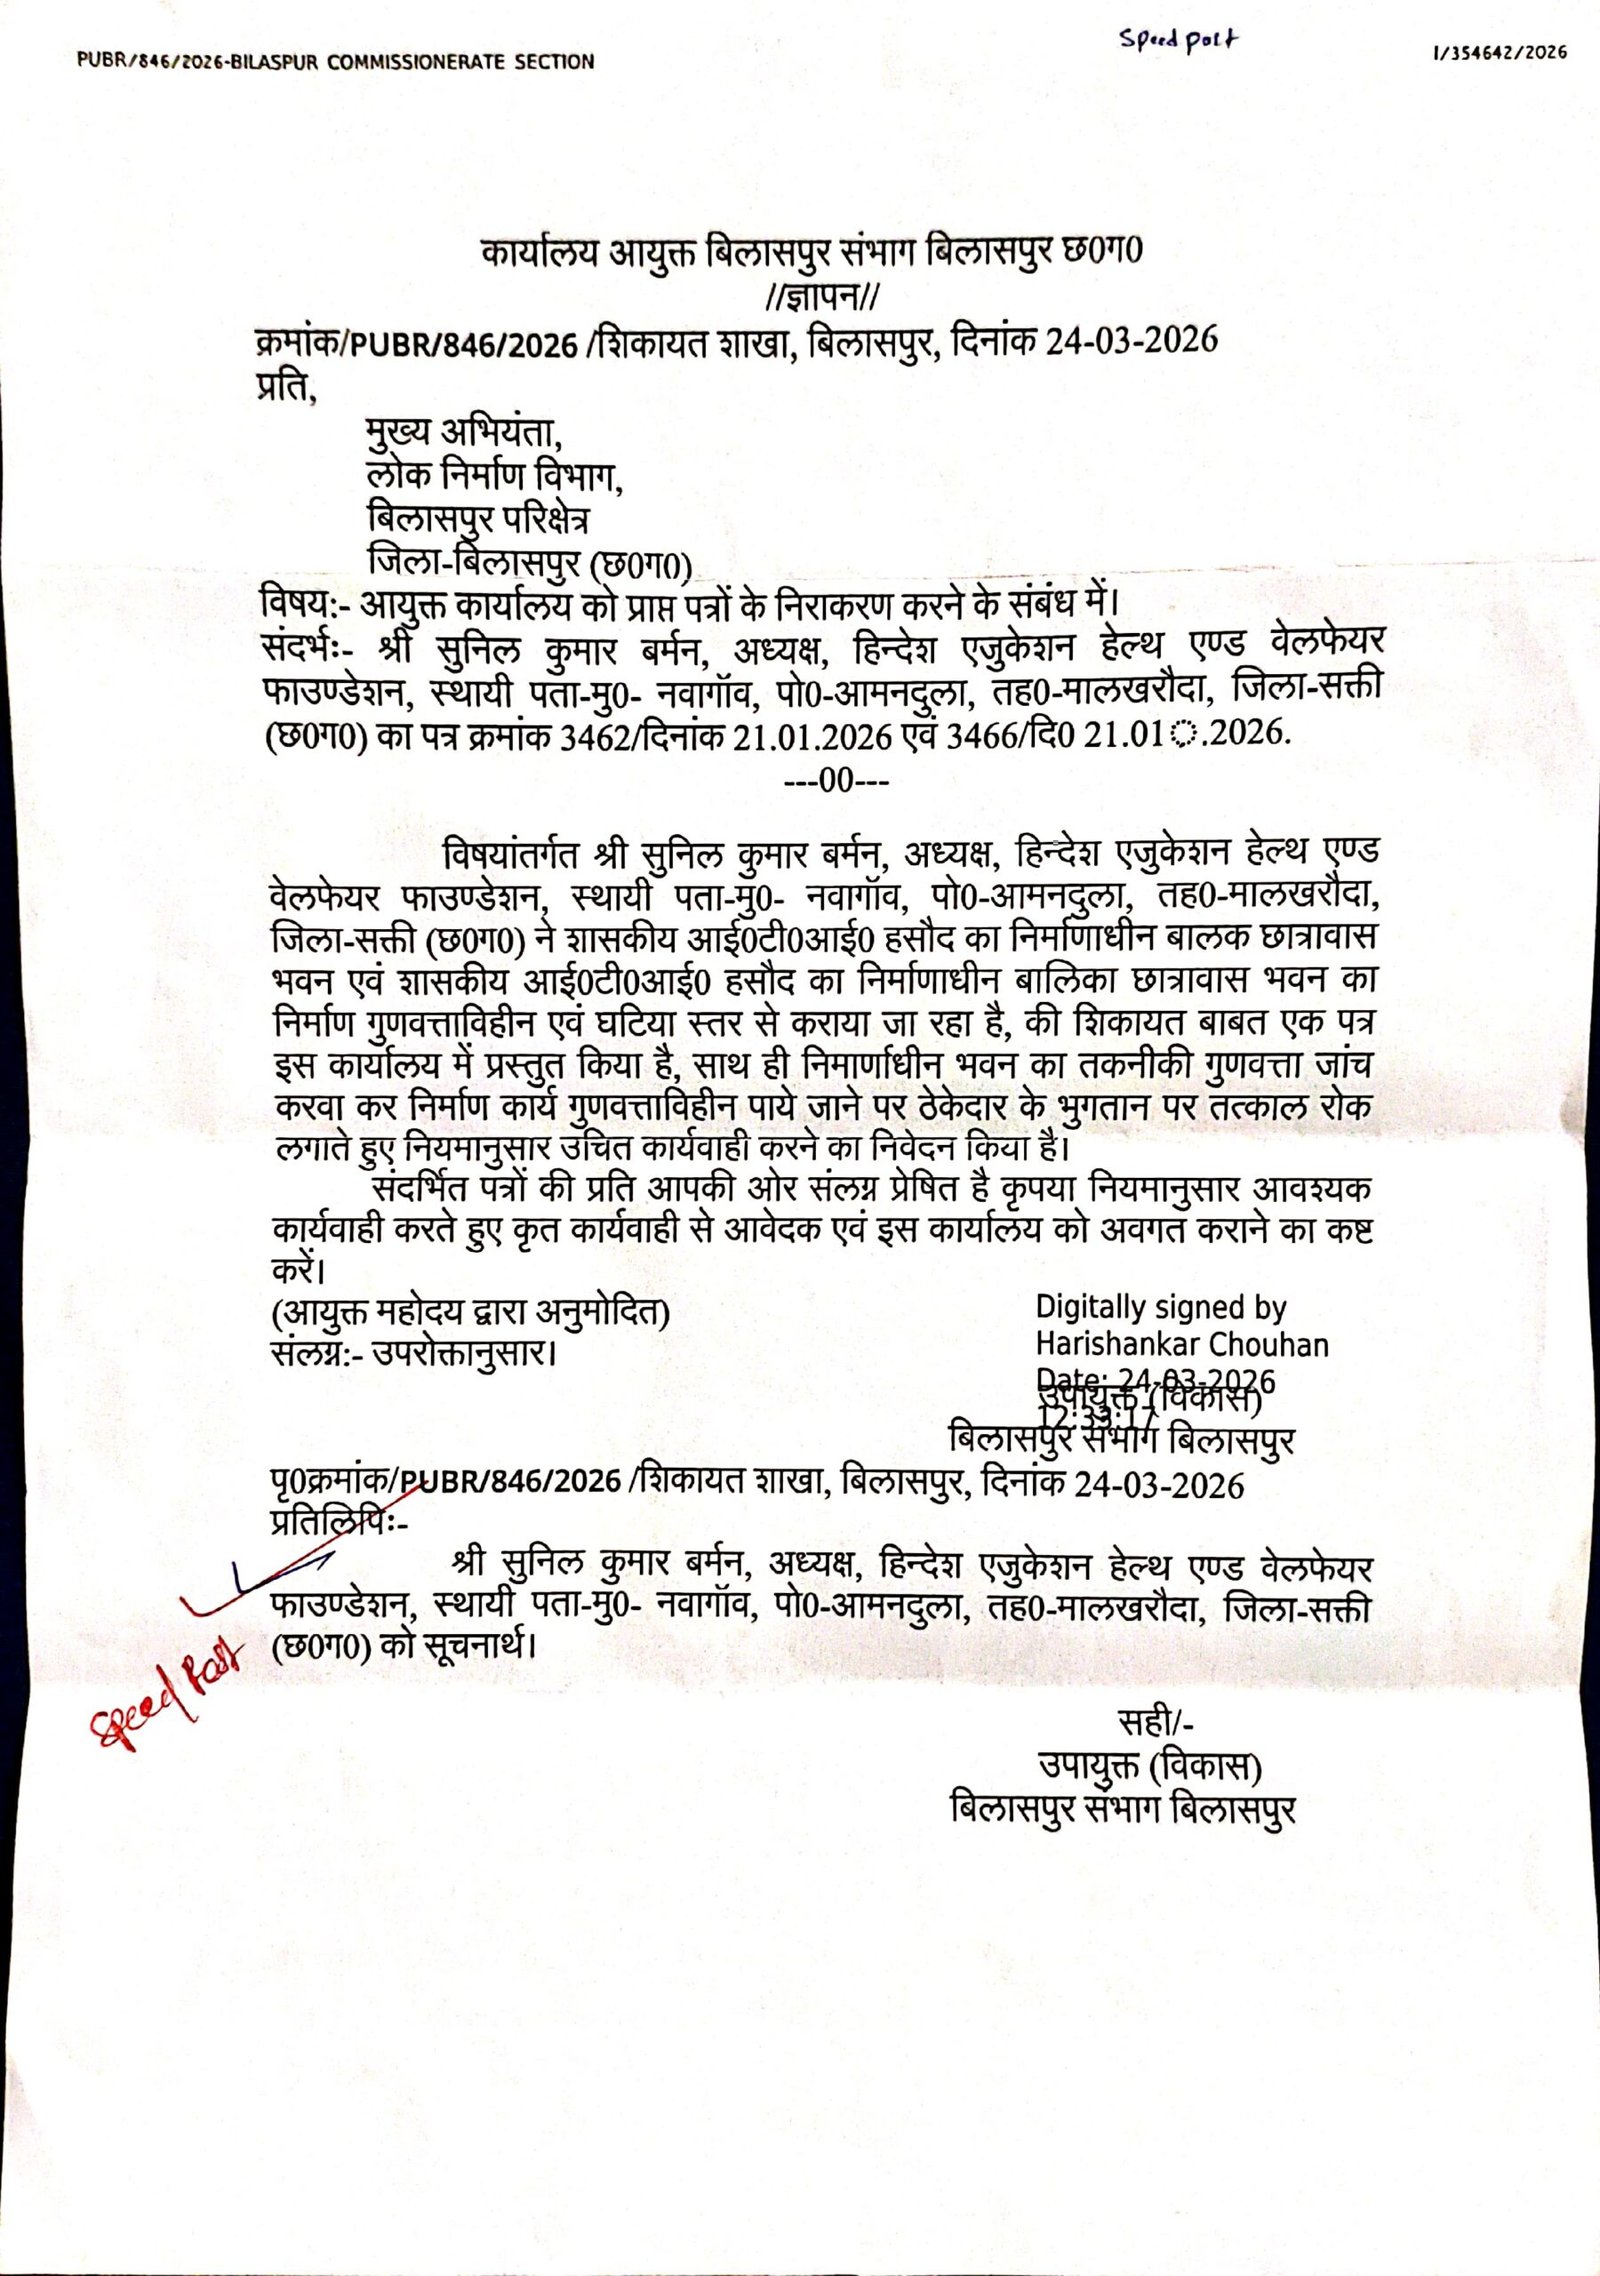 Speed post
PUBR/846/2026-BILASPUR COMMISSIONERATE SECTION
I/354642/2026
कार्यालय आयुक्त बिलासपुर संभाग बिलासपुर छ0ग0
//ज्ञापन//
क्रमांक/PUBR/846/2026 /शिकायत शाखा, बिलासपुर, दिनांक 24-03-2026
प्रति,
मुख्य अभियंता,
लोक निर्माण विभाग,
बिलासपुर परिक्षेत्र
जिला-बिलासपुर (छ0ग0)
विषय:- आयुक्त कार्यालय को प्राप्त पत्रों के निराकरण करने के संबंध में।
संदर्भः- श्री सुनिल कुमार बर्मन, अध्यक्ष, हिन्देश एजुकेशन हेल्थ एण्ड वेलफेयर
फाउण्डेशन, स्थायी पता-मु0- नवागॉव, पो0-आमनदुला, तह0-मालखरौदा, जिला-सक्ती
(छ0ग0) का पत्र क्रमांक 3462/दिनांक 21.01.2026 एवं 3466/दि0 21.01़.2026.
---00---
विषयांतर्गत श्री सुनिल कुमार बर्मन, अध्यक्ष, हिन्देश एजुकेशन हेल्थ एण्ड
वेलफेयर फाउण्डेशन, स्थायी पता-मु0- नवागॉव, पो0-आमनदुला, तह0-मालखरौदा,
जिला-सक्ती (छ0ग0) ने शासकीय आई0टी0आई0 हसौद का निर्माणाधीन बालक छात्रावास
भवन एवं शासकीय आई0टी0आई0 हसौद का निर्माणाधीन बालिका छात्रावास भवन का
निर्माण गुणवत्ताविहीन एवं घटिया स्तर से कराया जा रहा है, की शिकायत बाबत एक पत्र
इस कार्यालय में प्रस्तुत किया है, साथ ही निमार्णाधीन भवन का तकनीकी गुणवत्ता जांच
करवा कर निर्माण कार्य गुणवत्ताविहीन पाये जाने पर ठेकेदार के भुगतान पर तत्काल रोक
लगाते हुए नियमानुसार उचित कार्यवाही करने का निवेदन किया है।
संदर्भित पत्रों की प्रति आपकी ओर संलग्न प्रेषित है कृपया नियमानुसार आवश्यक
कार्यवाही करते हुए कृत कार्यवाही से आवेदक एवं इस कार्यालय को अवगत कराने का कष्ट
करें।
(आयुक्त महोदय द्वारा अनुमोदित)
संलग्न:- उपरोक्तानुसार।
Digitally signed by
Harishankar Chouhan
Date: 24-03-2026
12:33:17
उपायुक्त (विकास)
बिलासपुर संभाग बिलासपुर
पृ0क्रमांक/PUBR/846/2026 /शिकायत शाखा, बिलासपुर, दिनांक 24-03-2026
प्रतिलिपिः-
श्री सुनिल कुमार बर्मन, अध्यक्ष, हिन्देश एजुकेशन हेल्थ एण्ड वेलफेयर
फाउण्डेशन, स्थायी पता-मु0- नवागॉव, पो0-आमनदुला, तह0-मालखरौदा, जिला-सक्ती
(छ0ग0) को सूचनार्थ।
Speed Post
सही/-
उपायुक्त (विकास)
बिलासपुर संभाग बिलासपुर